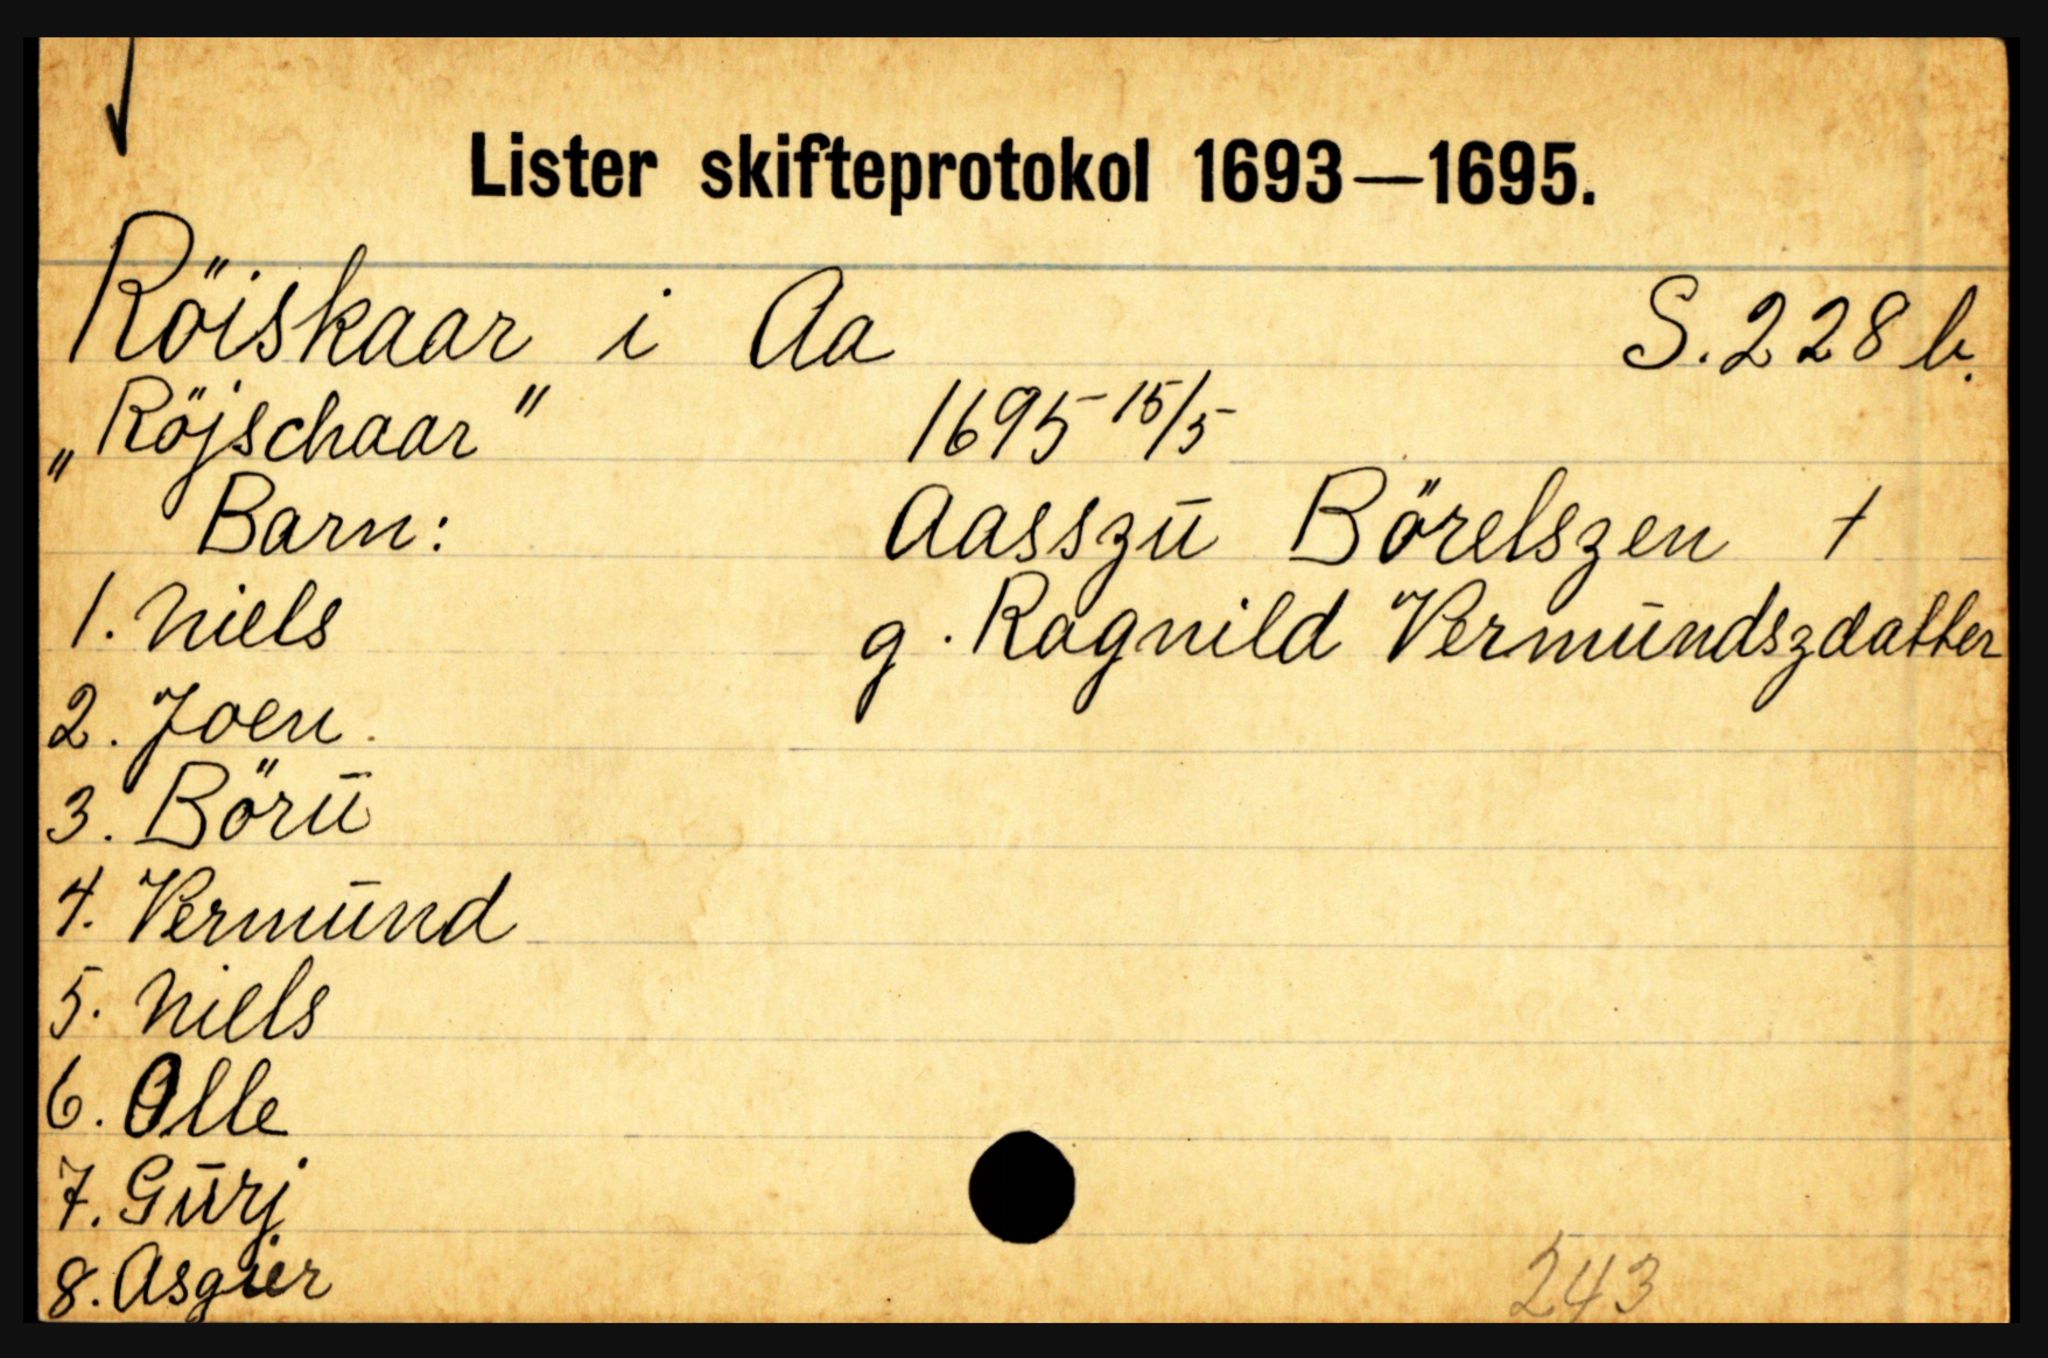 Lister skifteprotokol 1693—1695.
Röiskaar i Aa S. 228 b.
„Röjschaar" 1695 15/5
Barn: Aasszū Börelszen †
1. Niels g. Ragnild Vermūndszdatter
2. Joen.
3. Börū
4. Vermūnd
5. Niels
6. Olle
7. Gūrj
8. Asgier
243